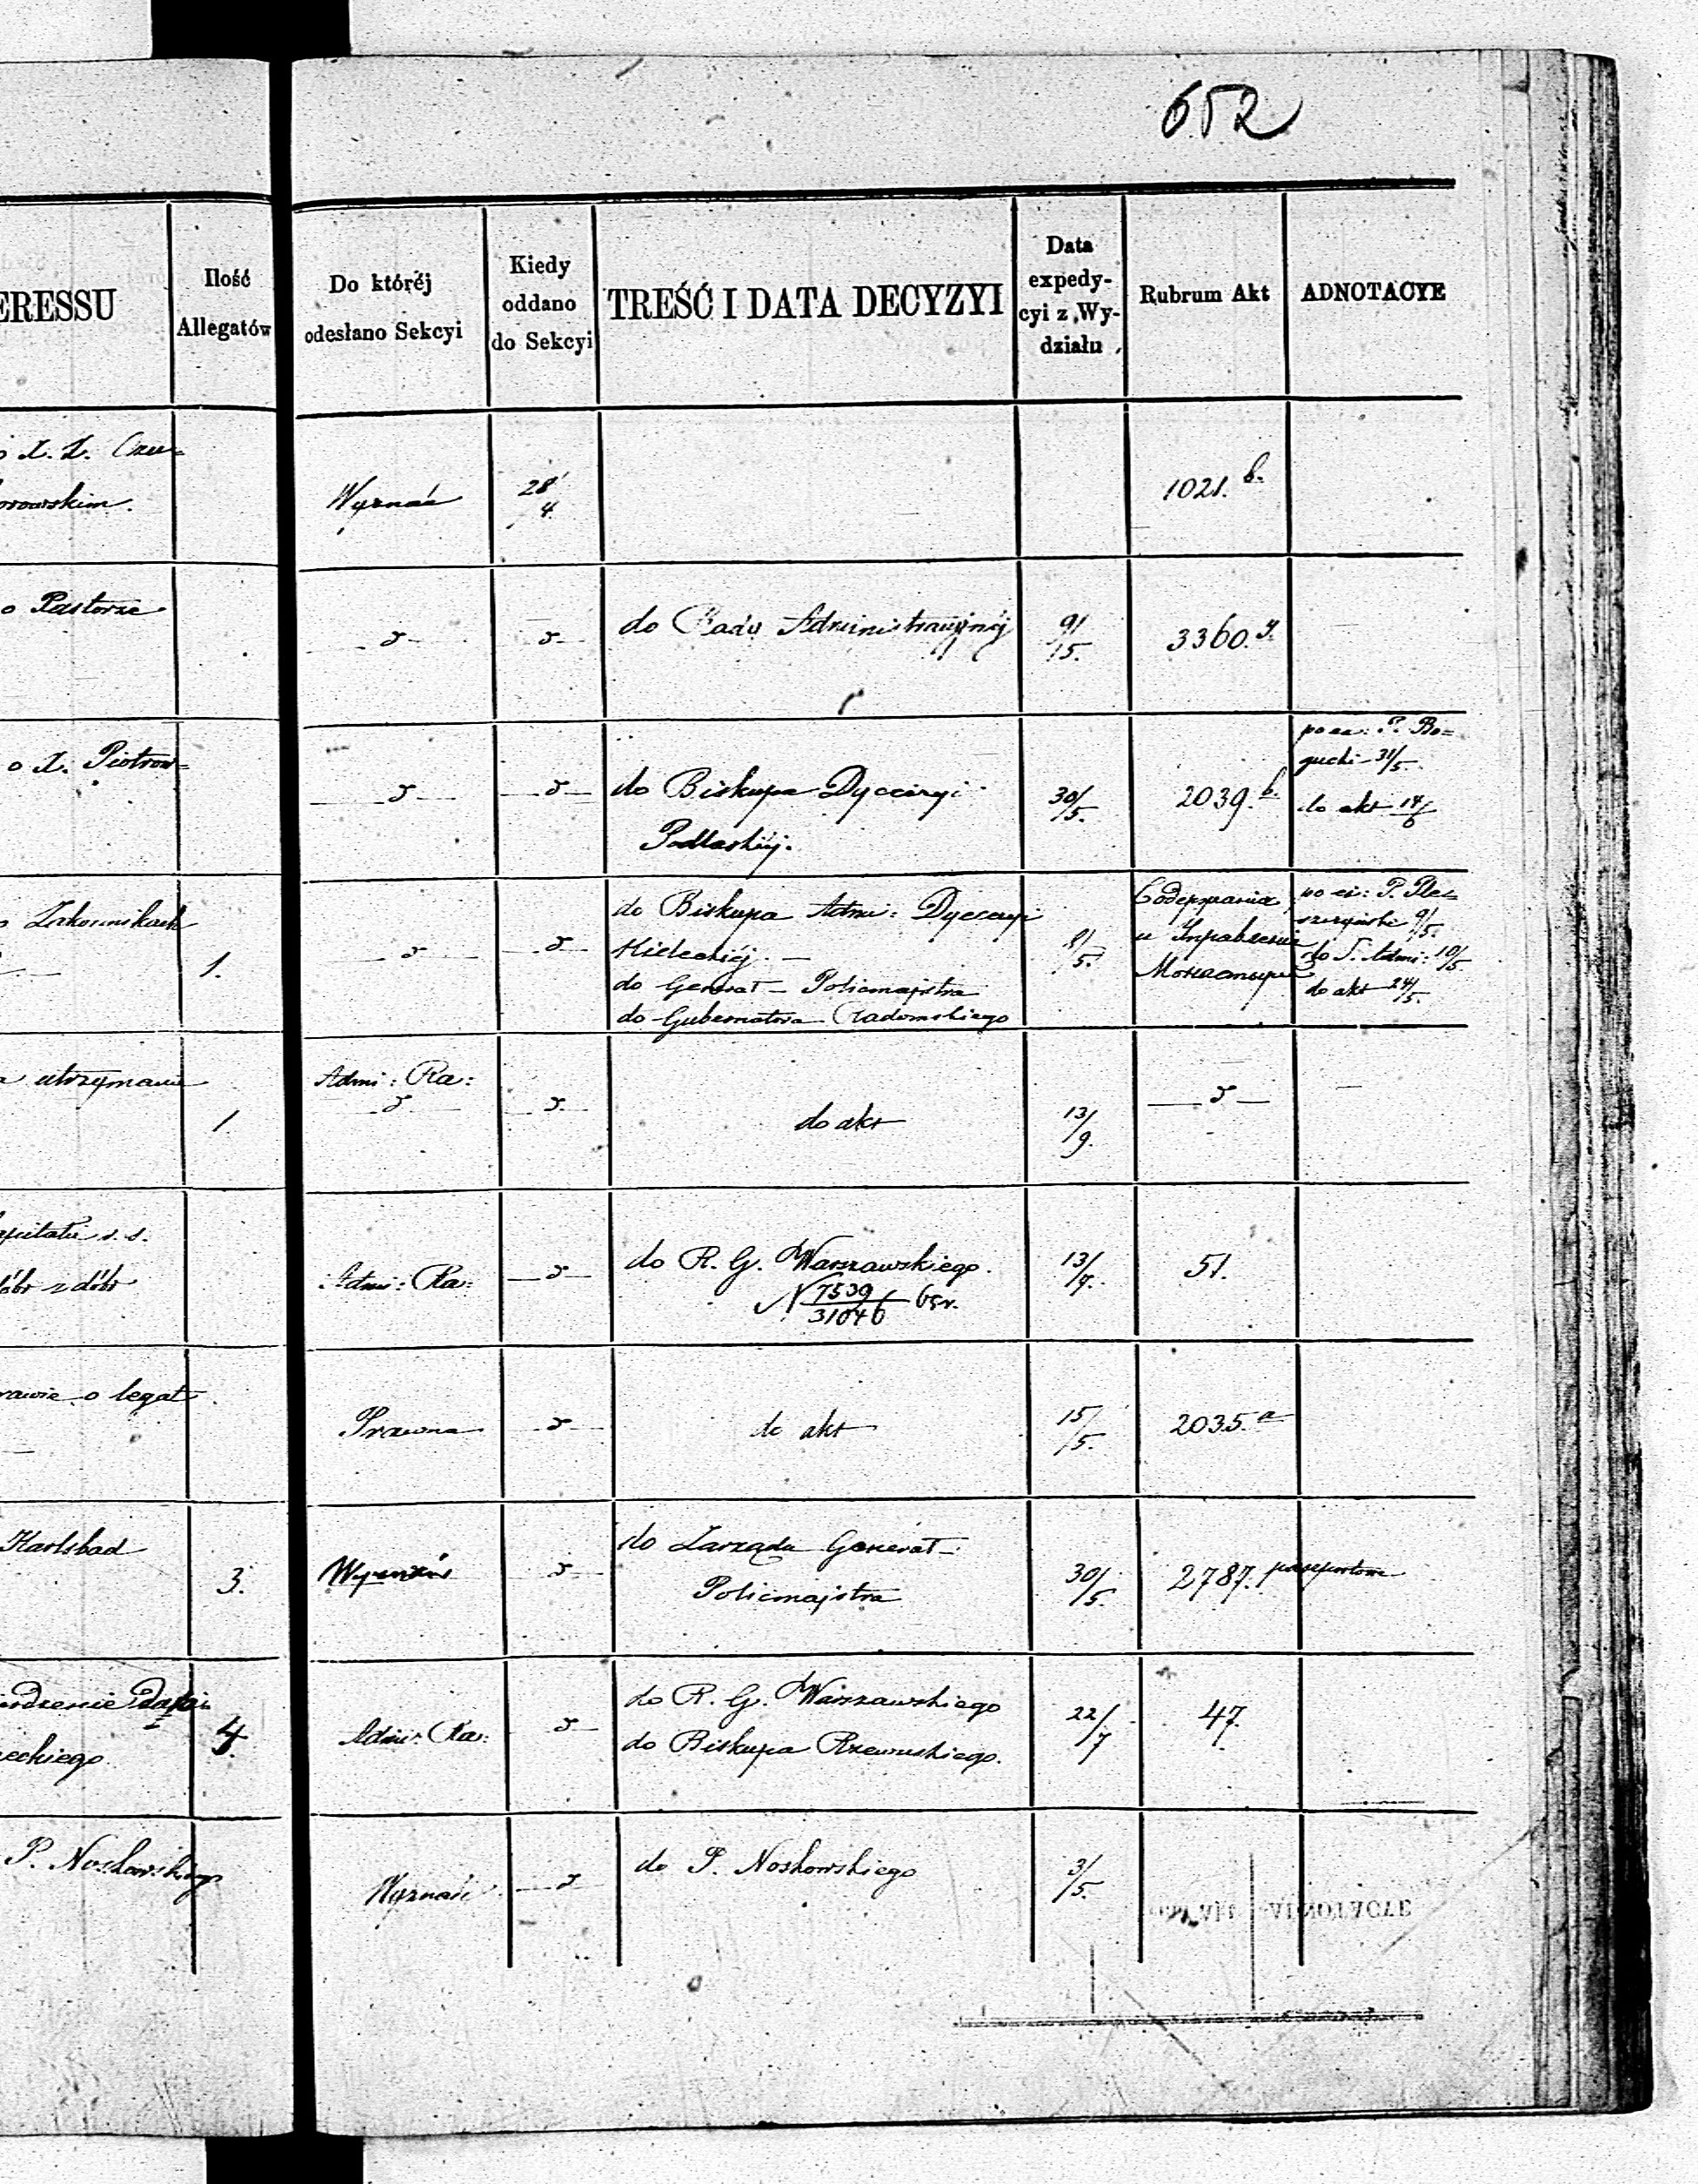 652
ERESSU
Ilość
Allegatów
Do któréj
odesłano Sekcyi
Kiedy
oddano
do Sekcyi
TREŚĆ I DATA DECYZYI
Data
expedy-
cyi z Wy-
działu
Rubrum Akt
ADNOTACYE
o X. X.
orowskim.
Wyznań
28/4
1021. b.
o Pastorze
do Rady Administracyjnéj
9/5.
3360. y.
o X. Piotrow=
do Biskupa Dyecezyi
Podlaskiéj.
30/5.
2039. b.
P. Bo=
gucki 31/5.
do akt 14/6
o Zakonnikach
1.
do Biskupa Admi: Dyecezyi
Kieleckiéj.
do Generał - Policmajstra
do Gubernatora Radomskiego
8/5.
Содержания
и
P. Ple=
szczyński 9/5.
do S. Admi: 10/5.
do akt 24/5.
a utrzymanie
1
Admi: Ra:
do akt
13/9.
apitału s. s.
dóbr z dóbr
Admi: Ra:
do R. G. Warszawskiego.
N 7539/31046 65 r.
13/7.
51.
rawie o legat
Prawna
do akt
15/5.
2035. a
Karlsbad
3.
Wyznań
do Zarządu Generał -
Policmajstra
30/5.
2787. paszportowe
eckiego
4.
Admi: Ra:
do R. G. Warszawskiego
do Biskupa Rzewuskiego.
22/7
47.
P. Noskowskiego
Wyznań
do P. Noskowskiego
3/5.